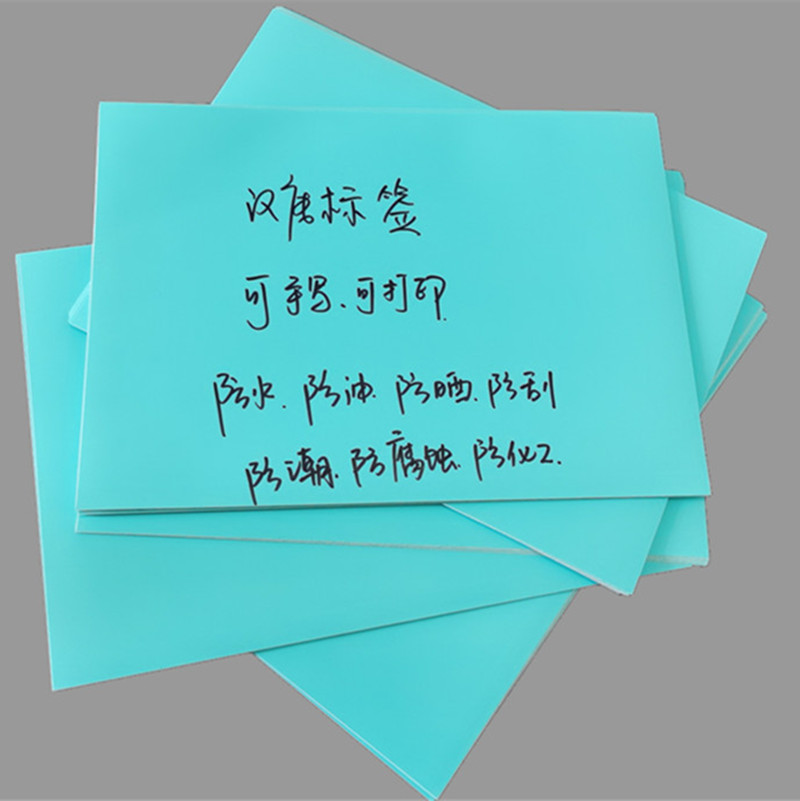 汉唐标签
可手写.可打印.
防水.防油.防晒.防刮
防潮.防腐蚀.防化工.